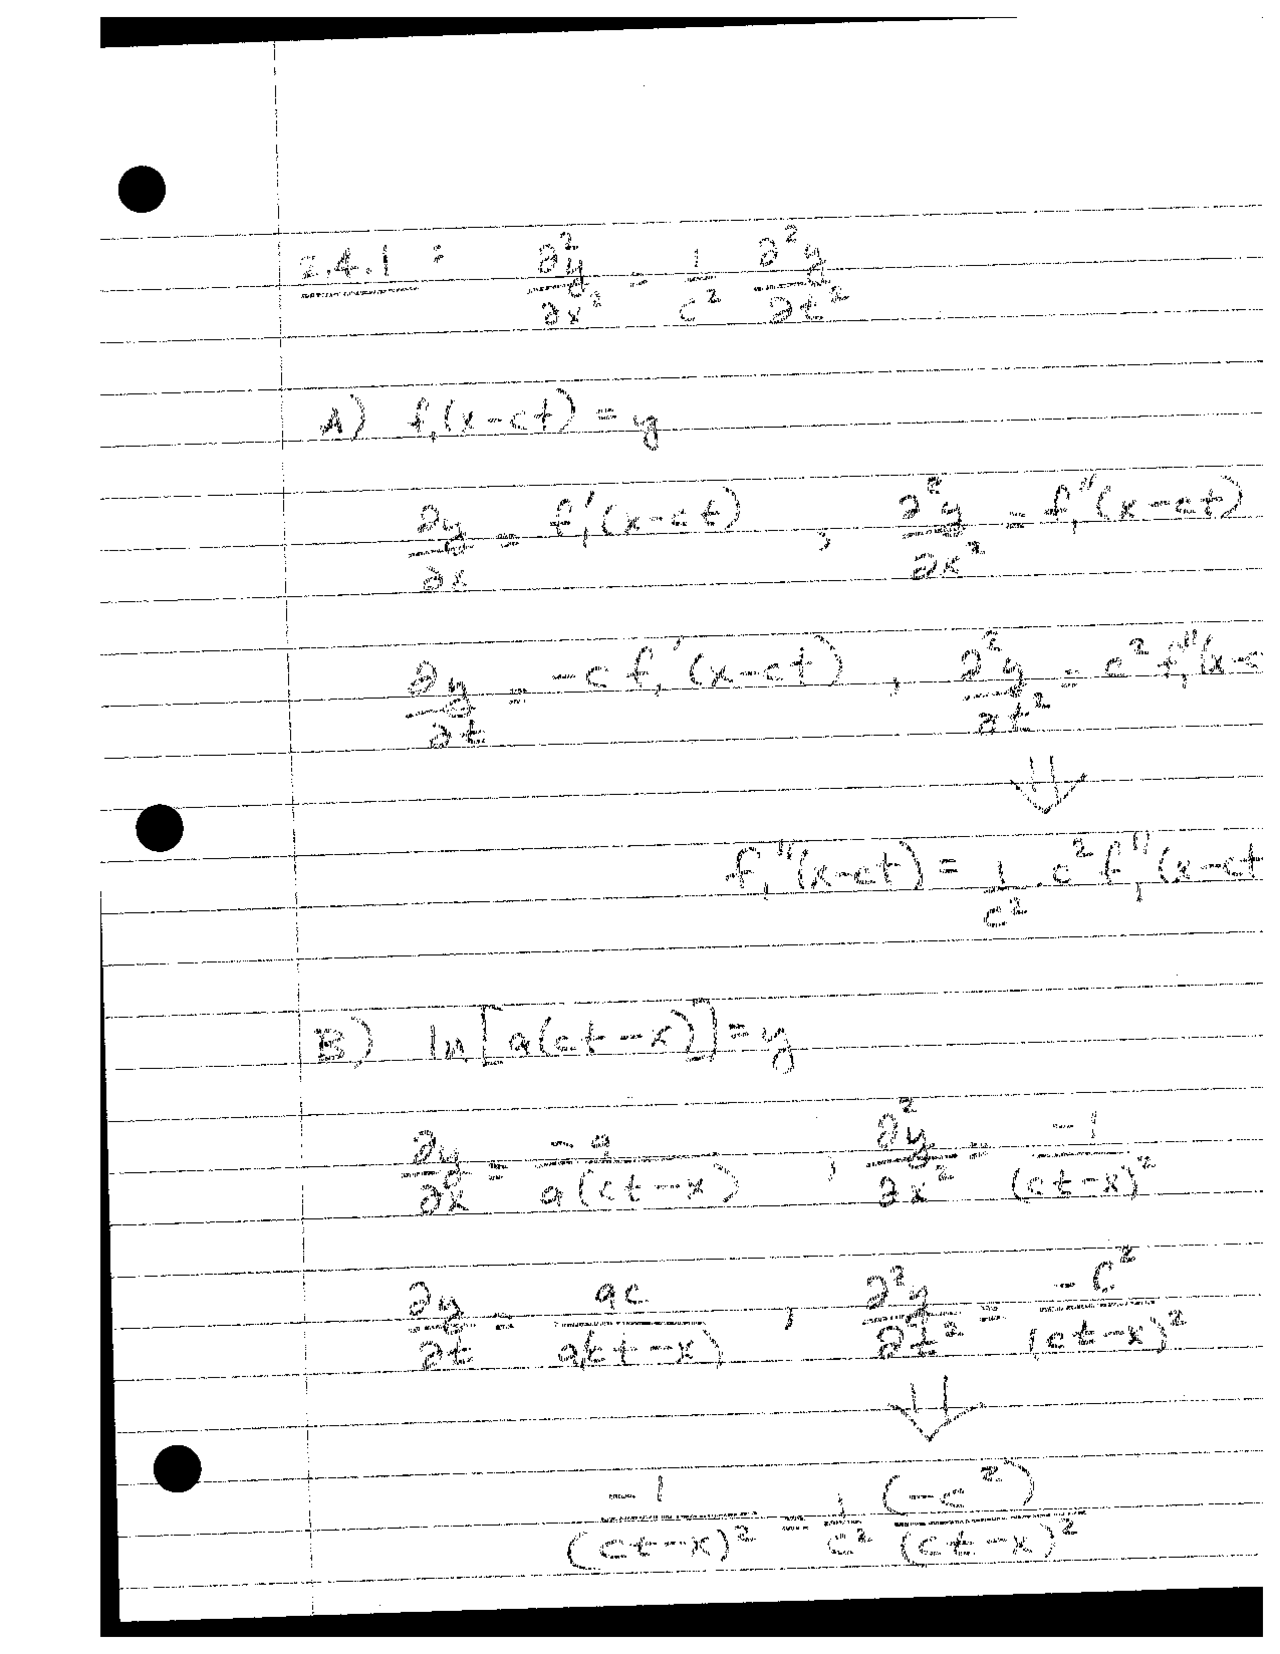 2.4.1 : ∂²y/∂x² = 1/c² ∂²y/∂t²
A) f₁(x-ct) = y
∂y/∂x = f₁'(x-ct) , ∂²y/∂x² = f₁''(x-ct)
∂y/∂t = -c f₁'(x-ct) , ∂²y/∂t² = c² f₁''(x-c
⇓
f₁''(x-ct) = 1/c² · c² f₁''(x-ct
B) ln[a(ct-x)] = y
∂y/∂x = -a/a(ct-x) , ∂²y/∂x² = -1/(ct-x)²
∂y/∂t = ac/a(ct-x) , ∂²y/∂t² = -c²/(ct-x)²
⇓
-1/(ct-x)² = 1/c² (-c²)/(ct-x)²